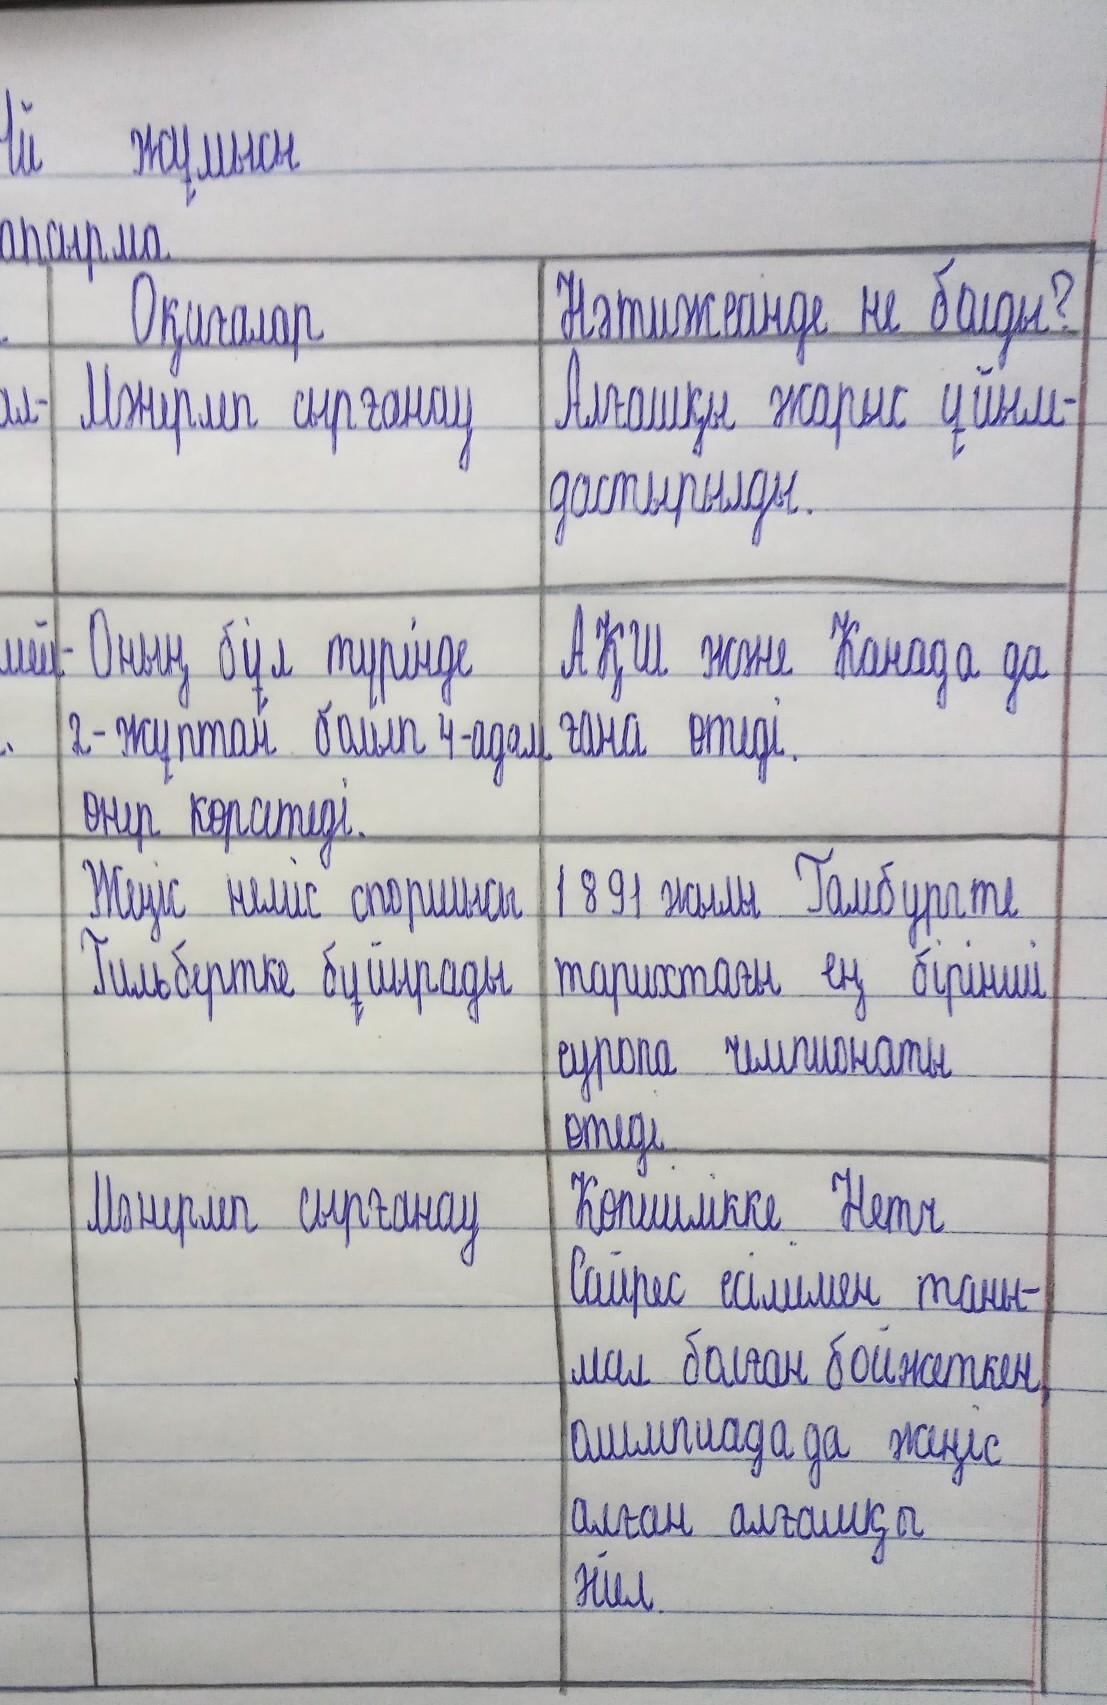 жұмысы
Оқиғалар
Нәтижесінде не болды?
Мәнерлеп сырғанау
Алғашқы жарыс ұйым-
дастырылды.
Оның бұл түрінде
2-жұптан болып 4-адам
өнер көрсетеді.
АҚШ және Канада да
ғана өтеді.
Жеңіс неміс спортшысы
Гильбертке бұйырады
1891 жылы Гамбургте
тарихтағы ең бірінші
еуропа чемпионаты
өтеді
Мәнерлеп сырғанау
Көпшілікке
есімімен таны-
мал болған бойжеткен,
олимпиадада жеңіс
алған алғашқы